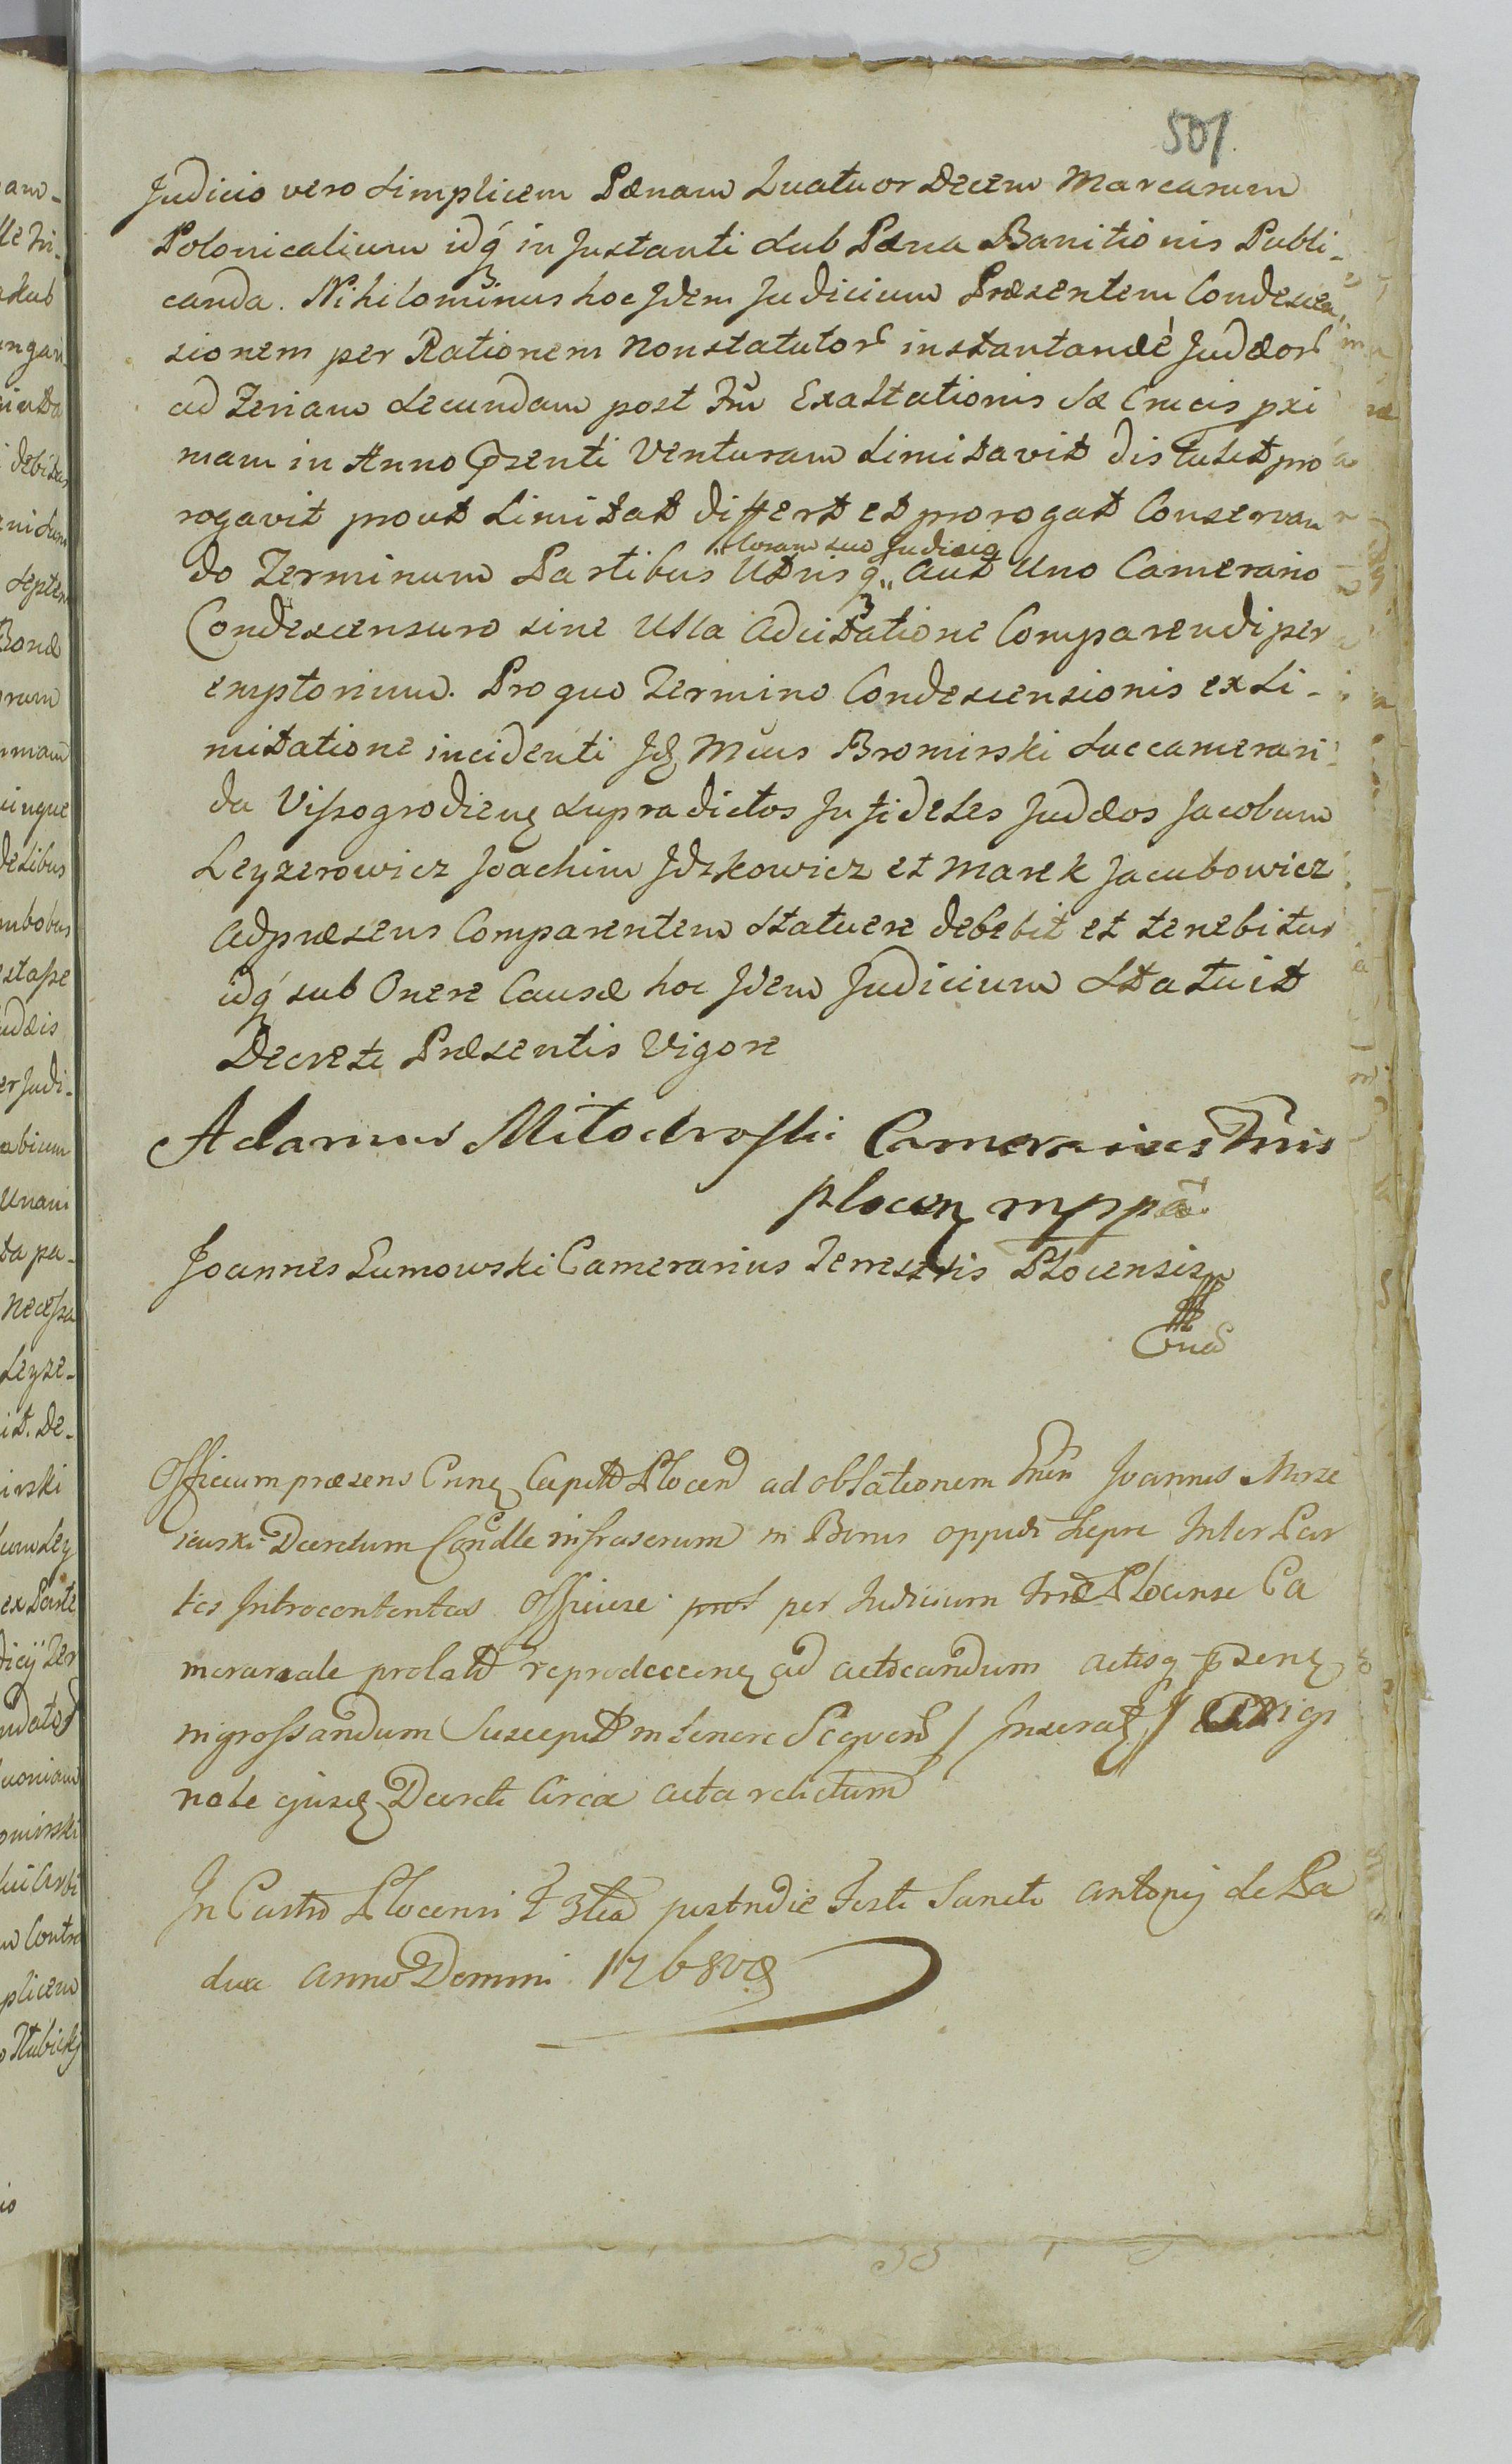 501.
Judicio vero Simplicem Pænam Quatuor Decem Marcarum
Polonicalium idq́ in Instanti Sub Pæna Banitionis Publi-
canda. Nihilominus hoc Idem Judicium Præsentem Condescen,,
sionem per Rationem non statutor instantanee Judæor
ad Feriam Secundam post Ftũ Exaltationis Sæ Crucis pxi
mam in Anno Pzenti Venturam Limitavit distulit pro
rogavit prout Limitat differt et prorogat Conservan
do Terminum Partibus Utrisq́ ,, aut Uno Camerario
,, Coram suo Judicio
Condescensuro sine Ulla Adcitatione Comparendi per
emptorium. Pro quo Termino Condescensionis ex Li-
mitatione incidenti Mcus Bromirski Succamerari
da Vissogrodien Supradictos Infideles Judæos Jacobum
Leyzerowicz Joachim Jdzkowicz et Marek Jacubowicz
Adpræsens Comparentem Statuere debebit et tenebitur
idq́ sub Onere Causæ hoc Idem Judicium Statuit
Decreti Præsentis Vigore
Adamus Miłodroski Camerarius Trris
plocen mppa
Joannes Łumowski Camerarius Terrestris Plocensis
Officium præsens Cap Plocen ad oblationem Joannis
Decretum infrascrum in Bonis oppidi Inter Par
tes Introcontentas Officiose per Judicium Trræ Plocense Ca
merariale prolat ad acticandum actisq pzen
ingrossandum Suscepit in tenore Sequen / Inserat / Origi
nale ejusd Decreti Circa acta relictum
In Castro Plocensi F 3tia postridie Festi Sancti Antonij de Pa
dua Anno Domini 1768vo